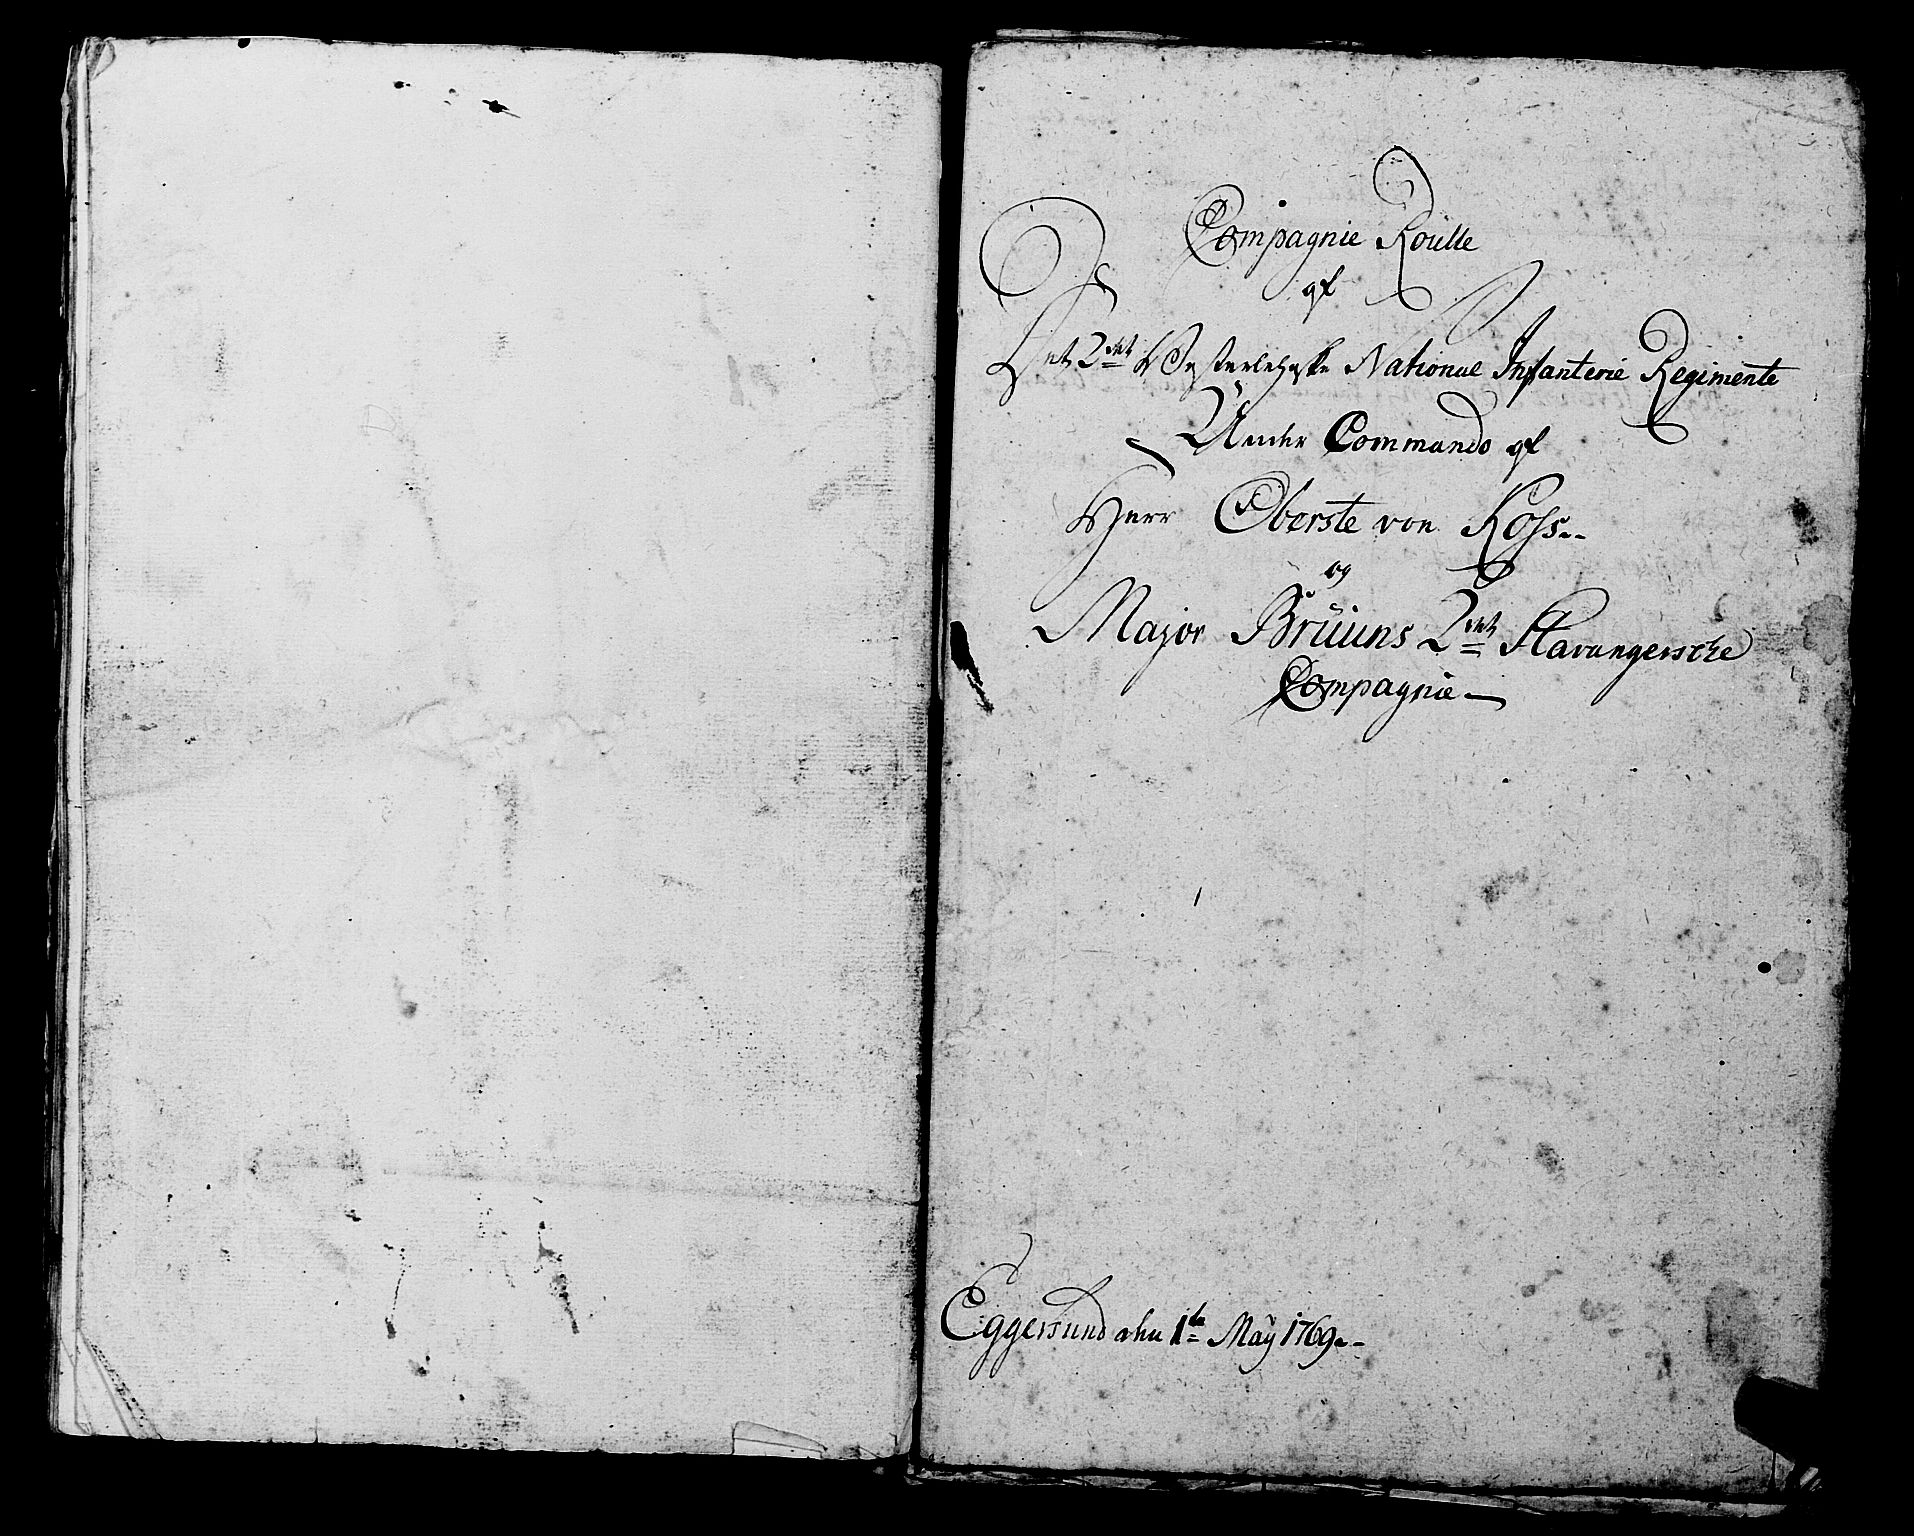 Compagnie Roulle
af
Det 2det Westerlehnske National Infanterie Regimente
Under Commando af
Herr Oberste von Koss
og
Major Brüüns 2det Stavangersche
Compagnie
Eggersund den 1te May 1769